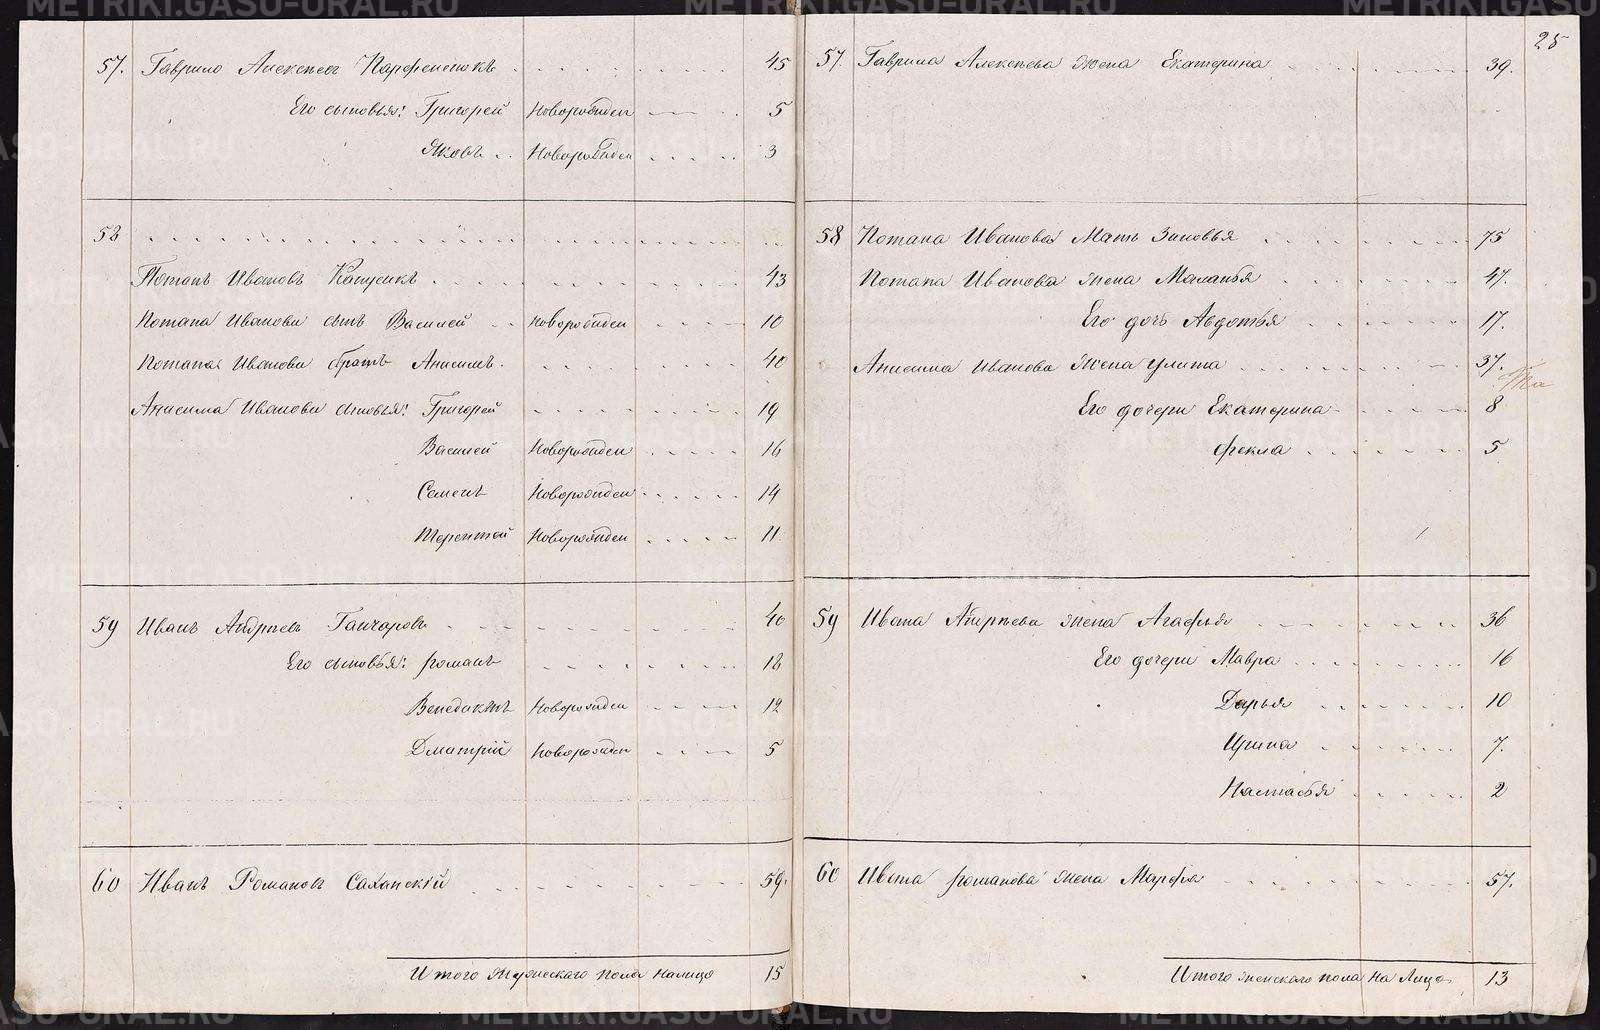 25
57. Гаврило Алексеевъ Парфененокъ 45
Его сыновья: Григорей Новорожден 5
Яковъ Новорожден 3
58
Потапъ Ивановъ 43
Потапа Иванова сынъ Василей Новорожден 10
Потапа Иванова братъ Анисимъ 40
Анисима Иванова сыновья: Григорей 19
Василей Новорожден 16
Семенъ Новорожден 14
Терентей Новорожден 11
59 Иванъ Андреевъ Ганчаровъ 40
Его сыновья: Романъ 18
Венедиктъ Новорожден 12
Дмитрій Новорожден 5
60 Иванъ Романовъ Саханскій 59.
Итого мужескаго пола налицо 15
57. Гаврила Алексеева жена Екатерина 39.
58 Потапа Иванова Мать Зиновья 75
Потапа Иванова жена Маланья 47.
Его дочь Авдотья 17.
Анисима Иванова жена Улита 37.
Его дочери Екатерина 8
Фекла 5
59 Ивана Андреева жена Агафья 36
Его дочери Мавра 16
Дарья 10
Ирина 7.
Настасья 2
60 Ивана Романова жена Марфа 57.
Итого женскаго пола на Лицо 13
METRIKI.GASO-URAL.RU